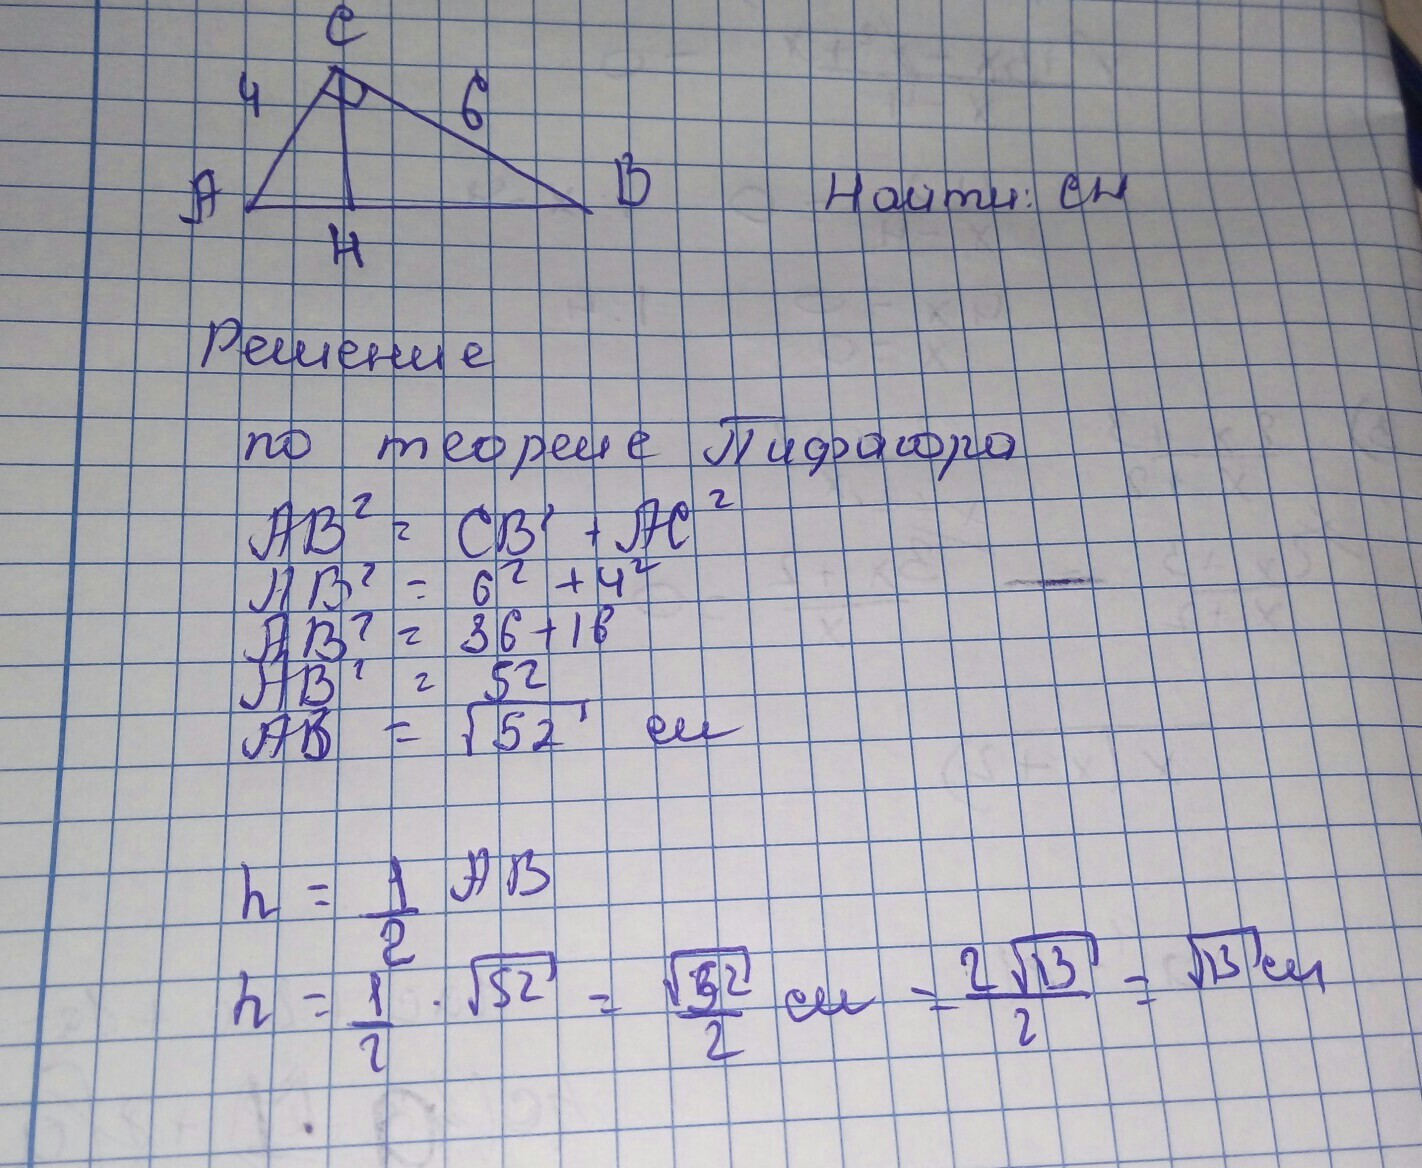 C
4 6
A B
H
Найти: CH
Решение
по теореме Пифагора
AB² = CB² + AC²
AB² = 6² + 4²
AB² = 36 + 16
AB² = 52
AB = √52 см
h = 1/2 AB
h = 1/2 · √52 = √52/2 см = 2√13/2 = √13 см